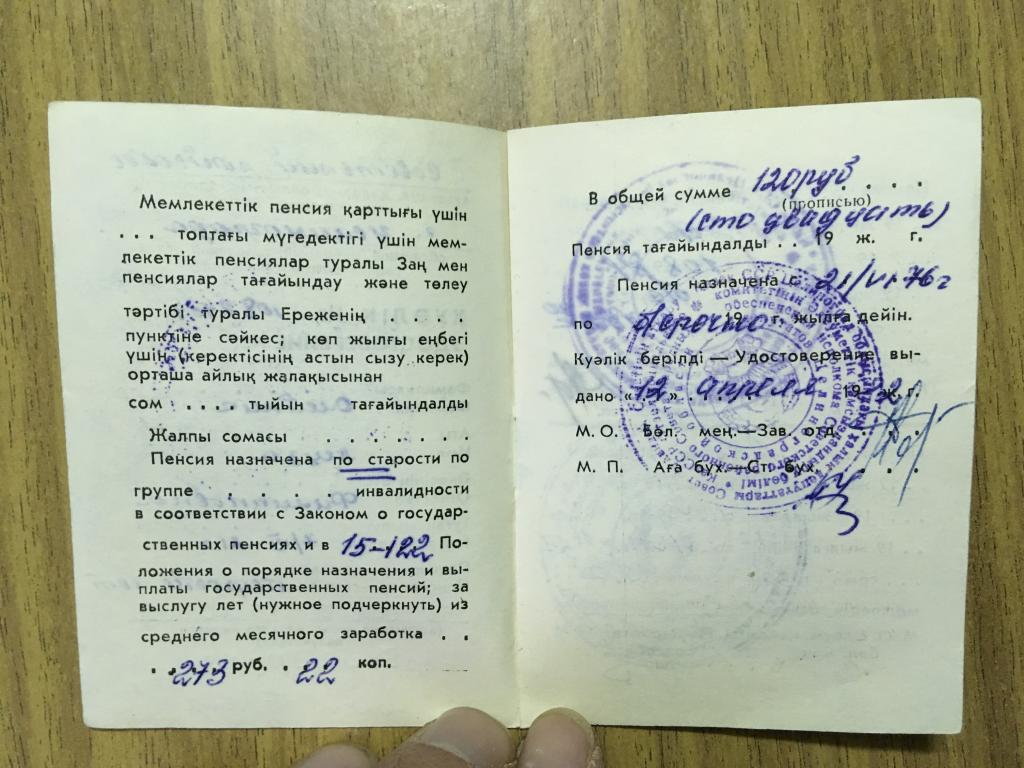 Мемлекеттік пенсия қарттығы үшін
. . . топтағы мүгедектігі үшін мем-
лекеттік пенсиялар туралы Заң мен
пенсиялар тағайындау және төлеу
тәртібі туралы Ереженің . . . .
пунктіне сәйкес; көп жылғы еңбегі
үшін, (керектісінің астын сызу керек)
орташа айлық жалақысынан
сом . . . . тыйын тағайындалды
Жалпы сомасы . . . . . . .
Пенсия назначена по старости по
группе . . . . . инвалидности
в соответствии с Законом о государ-
ственных пенсиях и в 15-122 По-
ложения о порядке назначения и вы-
платы государственных пенсий; за
выслугу лет (нужное подчеркнуть) из
среднего месячного заработка . .
. . 273 руб. . 22 коп.
В общей сумме 120 руб . . . .
(прописью)
(сто двадцать)
Пенсия тағайындалды . . 19 ж. г.
Пенсия назначена с 21/VI-76 г
по бсрочно 19 г. жылға дейін.
Куәлік берілді — Удостоверение вы-
дано «12» . апреля 19 ж. г.
М. О. Бөл. мең.—Зав. отд. . . .
М. П. Аға бух.—Ст. бух. . . . .